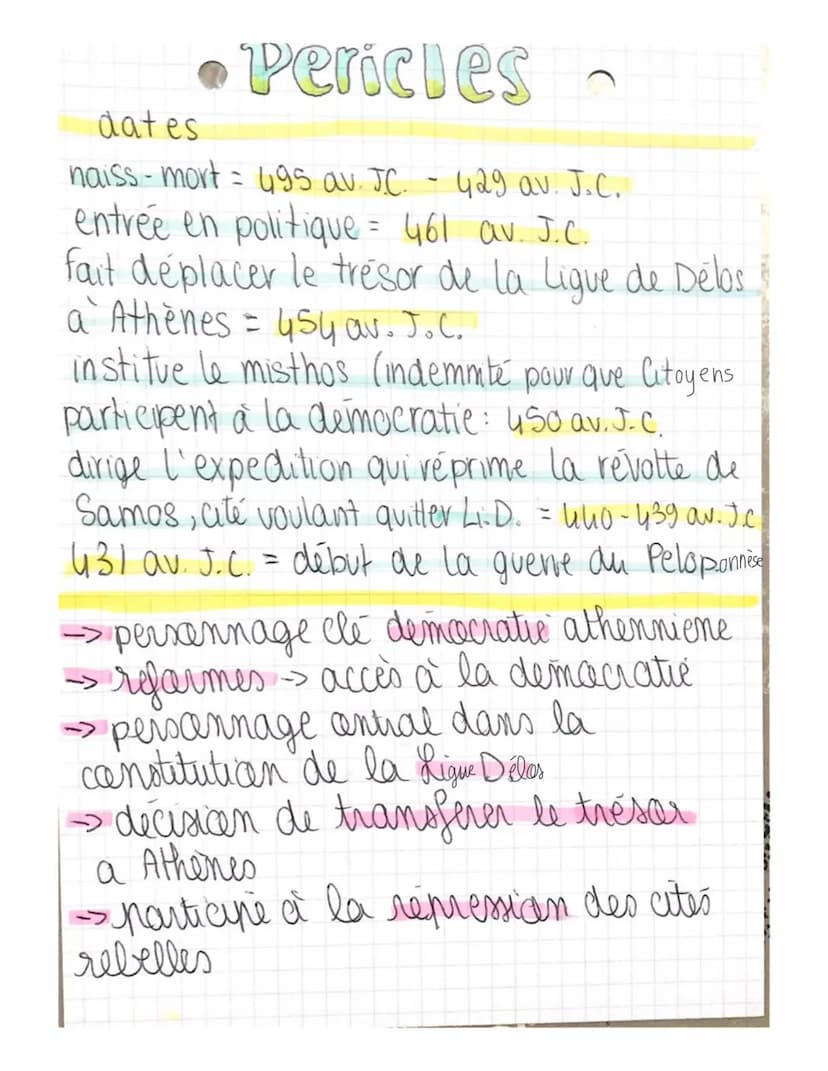 • Pericles
dates
naiss-mort = 495 av. J.C. - 429 av. J.C.
entrée en politique = 461 av. J.C.
fait déplacer le trésor de la Ligue de Délos
à Athènes = 454 av. J.C.
institue le misthos (indemnité pour que Citoyens
participent à la démocratie : 450 av. J.C.
dirige l'expedition qui réprime la révolte de
Samos, cité voulant quitter L.D. = 440-439 av. J.C
431 av. J.C. = début de la guerre du Peloponnèse
-> personnage clé démocratie athennieme
-> reformes -> accès à la démocratie
-> personnage central dans la
constitution de la Ligue Délos
-> décision de transferer le trésor
a Athènes
-> participe à la répression des cités
rebelles